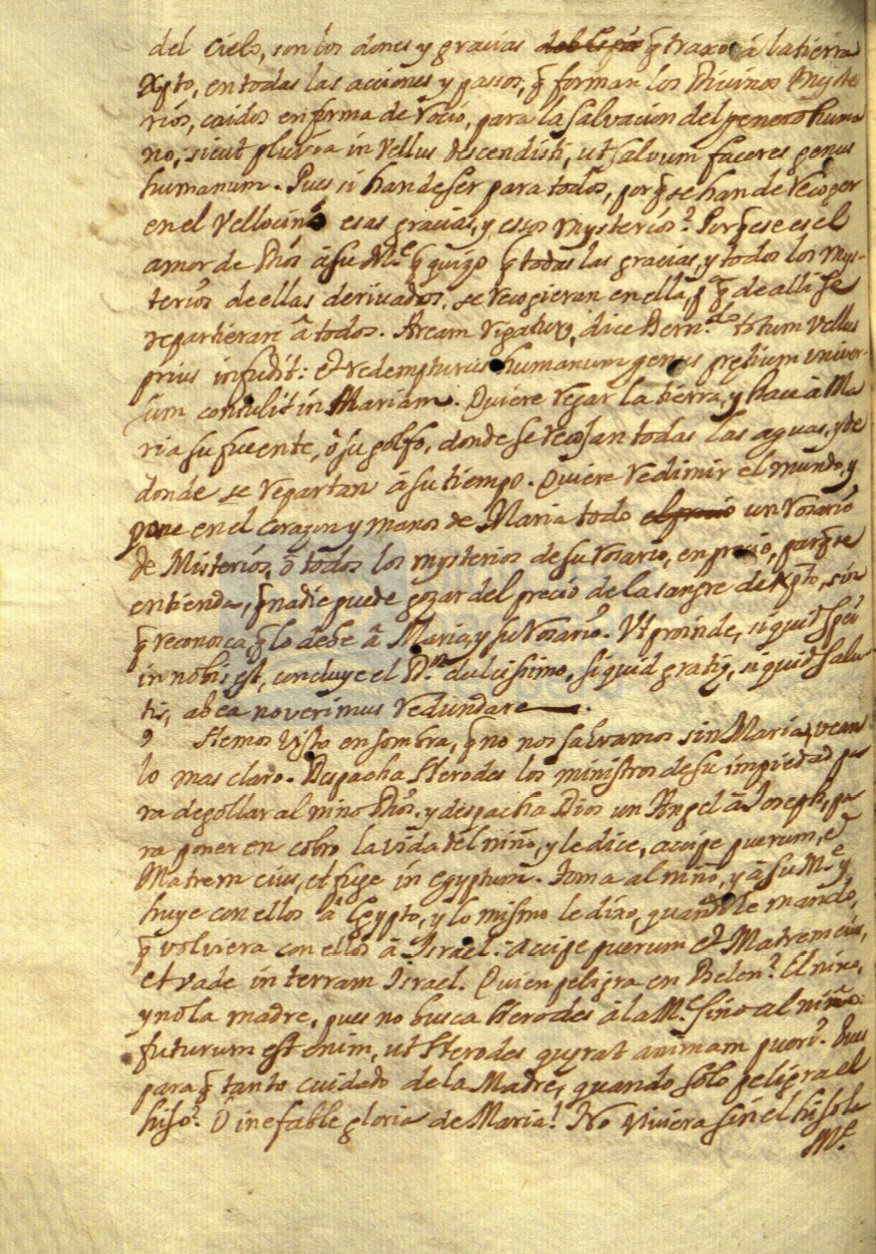 del cielo, son los dones y gracias q̃ traxo â la tierra
Xpto, en todas las acciones y passos, q̃ forman los Divinos Myste
rios, caidos en forma de rocio, para la salvacion del genero huma
no; sicut pluvia in vellus descendisti, ut salvum faceres genus
humanum. Pues si han de ser para todos, porq̃ se han de recoger
en el vellocino esas gracias, y essos mysterios? Porq̃ ese es el
amor de Dios â su Mᵉ q̃ quizo q̃ todas las gracias, y todos los mys-
terios de ellas derivados, se recogieran en ella, pᵃ q̃ de alli se
repartieran â todos. Aream rigaturus, dice Bernᵈᵒ totum vellus
prius infudit: et redempturus humanum genus pretium univer-
sum contulit in Mariam. Quiere regar la tierra, y hace â Ma
ria su fuente, ô su golfo, donde se recojan todas las aguas, y de
donde se repartan â su tiempo. Quiere redimir el mundo, y
pone en el corazon y manos de Maria todo el precio un rosario
de Misterios, ô todos los mysterios de su rosario, en precio, parq̃ se
entienda, q̃ nadie puede gozar del precio de la sangre de Xpto, sin
q̃ reconosca, q̃ lo debe â Maria, y su rosario. Ut proinde, si quid spei
in nobis est, concluye el Dʳ dulcissimo, si quid gratię, si quid salu
tis, ab ea noverimus redundare.
9 Hemos visto en sombra, q̃ no nos salvamos sin Maria, vean
lo mas claro. Despacha Herodes los ministros de su impiedad pa
ra degollar al niño Dios, y despacha Dios un Angel â Joseph, pa
ra poner en cobro la vida del niño, y le dice, accipe puerum, et
Matrem eius, et fuge in egyptum. Toma al niño, y â su Mᵉ y
huye con ellos â Egypto, y lo mismo le dixo, quando le mandò,
q̃ volviera con ellos â Israel: Accipe puerum et Matrem eius,
et vade in terram Israel. Quien peligra en Belen? El niño,
y no la madre, pues no busca Herodes â la Mᵉ sino al niño:
futurum est enim, ut Herodes quęrat animam pueri. Pues
para q̃ tanto cuidado de la Madre, quando solo peligra el
hijo? O inefable gloria de Maria! No viviera sin el hijo la
Mᵉ